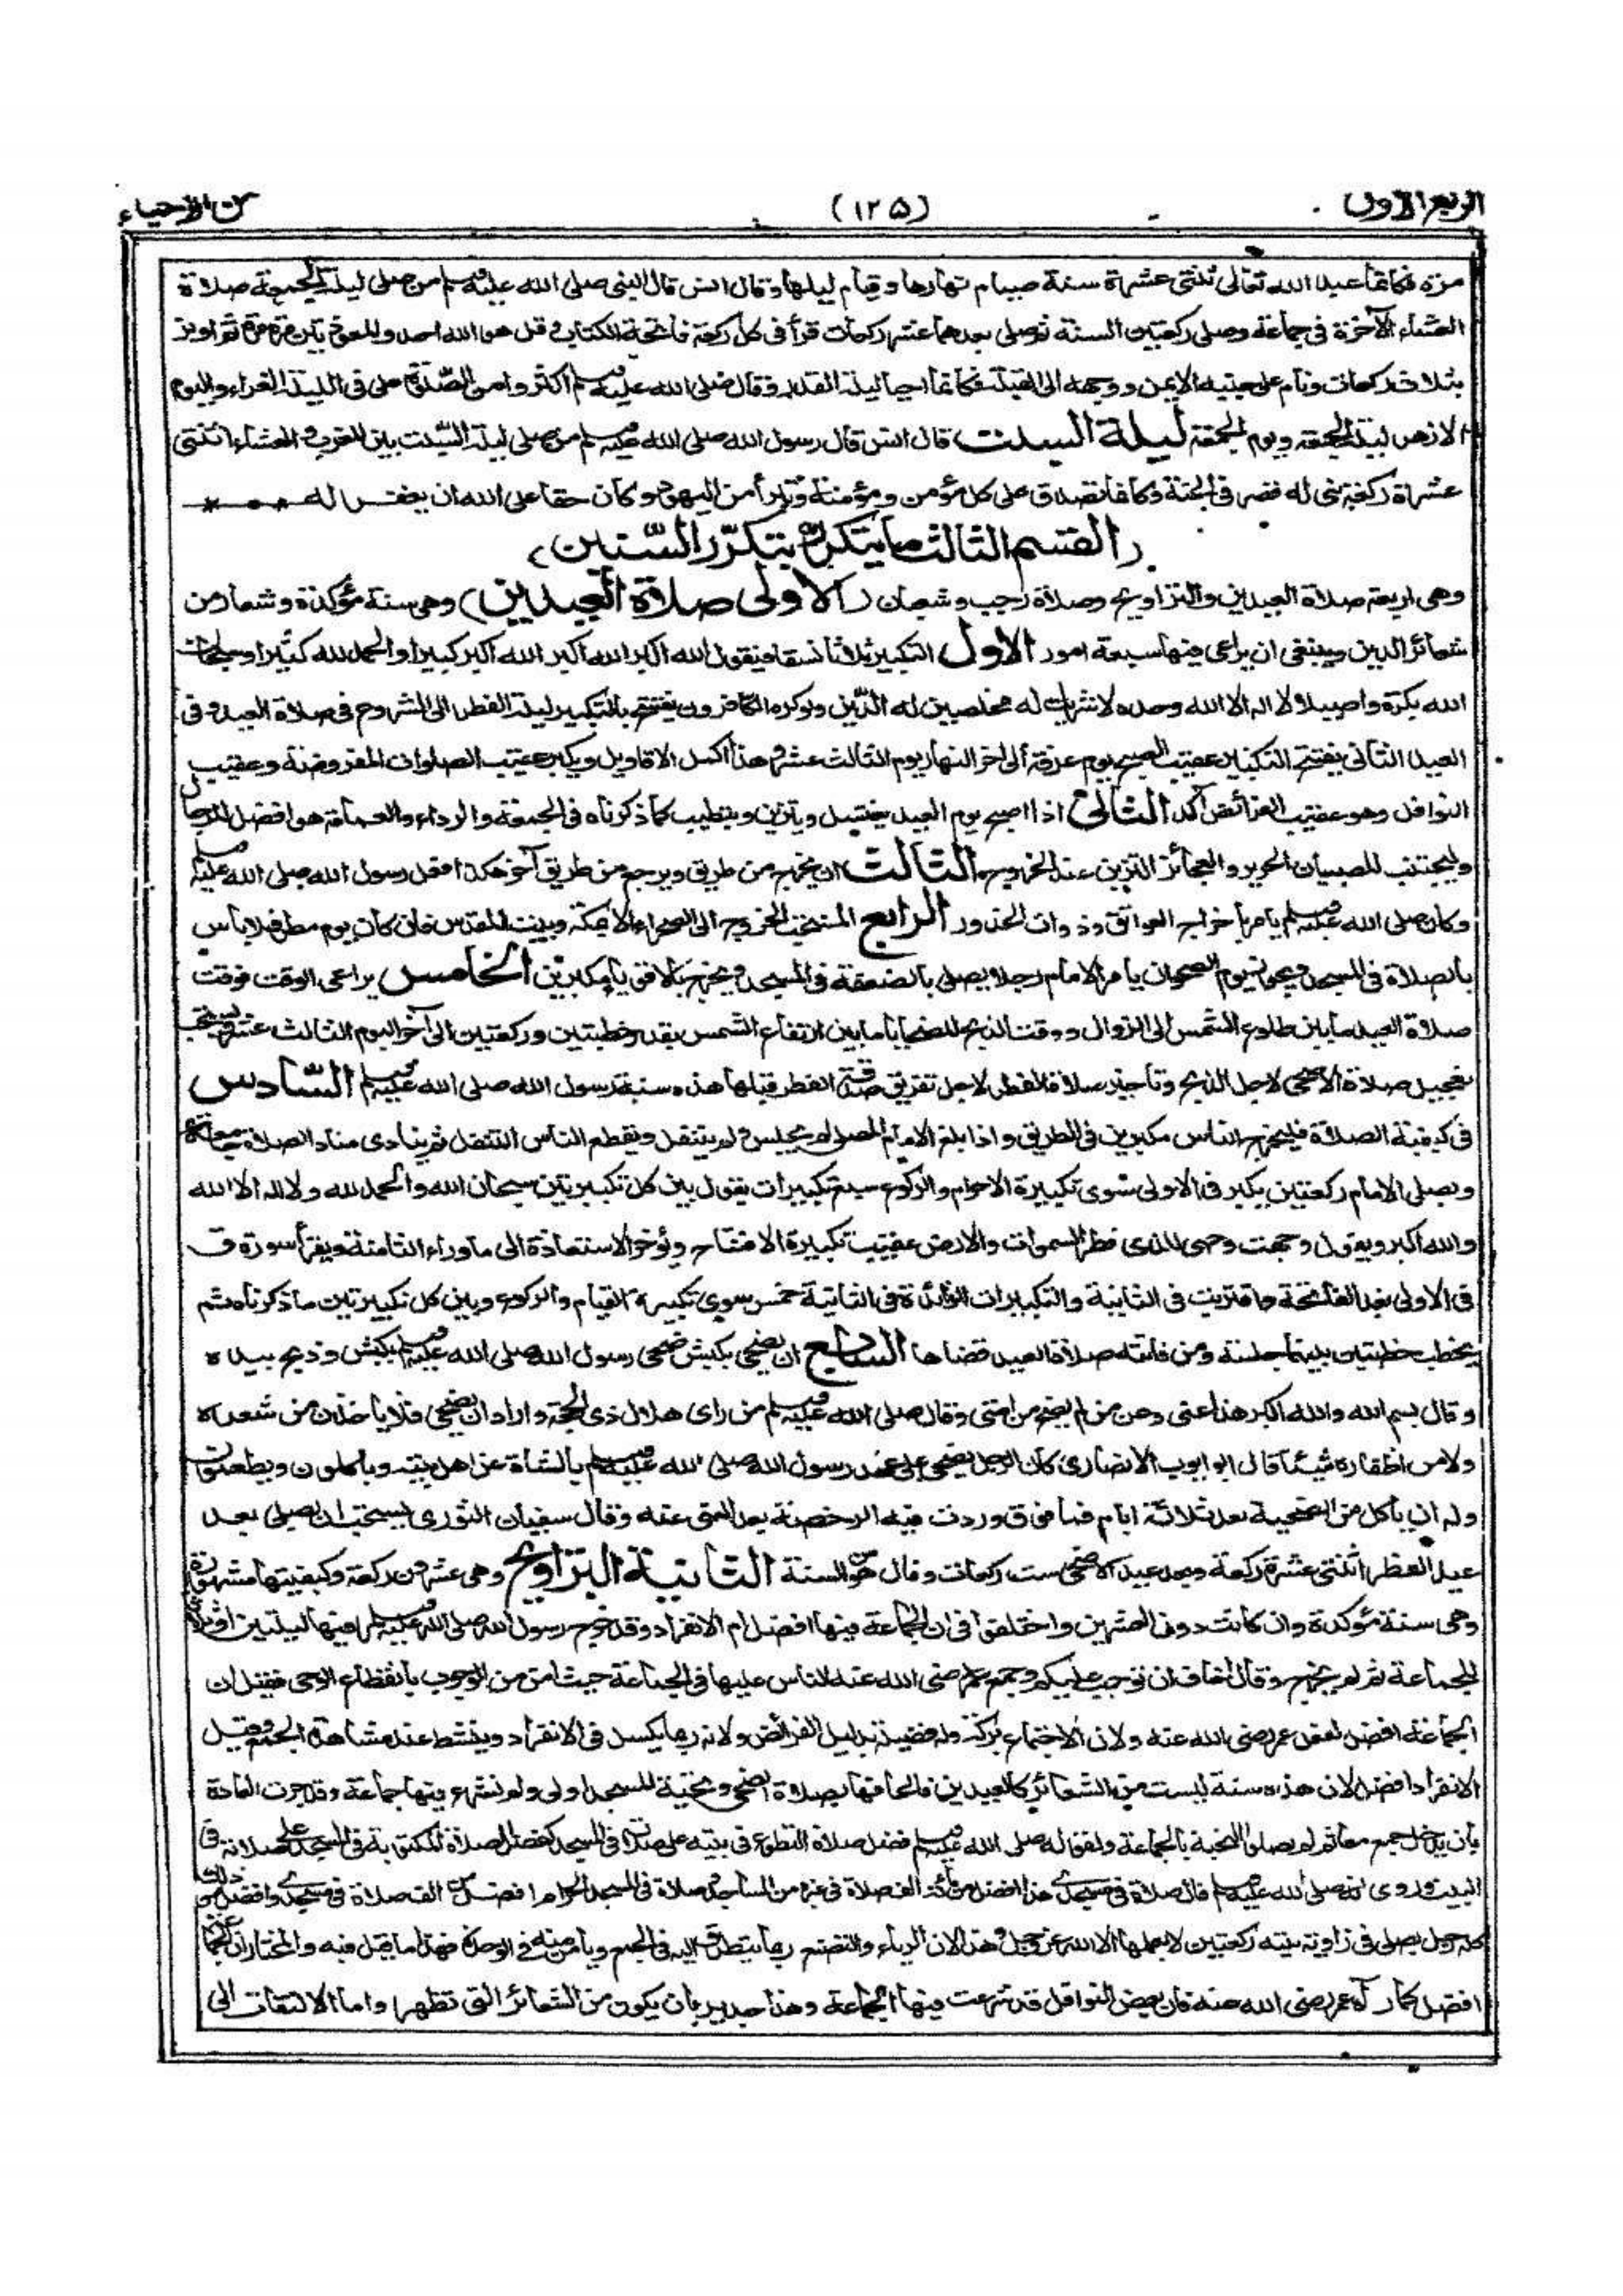 الربع الاول
(١٢٥)
من الاحياء
مرة فكانما عبد الله تعالى ثنتى عشرة سنة صيام نهارها وقيام ليلها وقال انس قال النبى صلى الله عليه وسلم من صلى ليلة الجمعة صلاة
العشاء الآخرة فى جماعة وصلى ركعتين السنة ثم صلى بعدهما عشر ركعات قرأ فى كل ركعة فاتحة الكتاب وقل هو الله احد والمعوذتين مرة مرة ثم اوتر
بثلاث ركعات ونام على جنبه الايمن ووجهه الى القبلة فكانما احيا ليلة القدر وقال صلى الله عليه وسلم اكثروا من الصلوة على فى الليلة الغراء واليوم
الازهر ليلة الجمعة ويوم الجمعة ليلة السبت قال انس قال رسول الله صلى الله عليه وسلم من صلى ليلة السبت بين المغرب والعشاء اثنتى
عشرة ركعة بنى له قصر فى الجنة وكانما تصدق على كل مؤمن ومؤمنة وتبرأ من اليهود وكان حقا على الله ان يغفر له
(القسم الثالث ما يتكرر بتكرر السنين)
وهى اربعة صلاة العيدين والتراويح وصلاة رجب وشعبان (الاولى صلاة العيدين) وهى سنة مؤكدة وشعار من
شعائر الدين وينبغى ان يراعى فيها سبعة امور الاول التكبير ثلاثا نسقا فيقول الله اكبر الله اكبر الله اكبر كبيرا والحمد لله كثيرا وسبحان
الله بكرة واصيلا لا اله الا الله وحده لا شريك له مخلصين له الدين ولو كره الكافرون يفتتح بالتكبير ليلة الفطر الى الشروع فى صلاة العيد وفى
العيد الثانى يفتتح التكبير عقيب الصبح يوم عرفة الى آخر النهار يوم الثالث عشر وهذا اكمل الاقاويل ويكبر عقيب الصلوات المفروضة وعقيب
النوافل وهو عقيب الفرائض آكد الثانى اذا اصبح يوم العيد يغتسل ويتزين ويتطيب كما ذكرناه فى الجمعة والرداء والعمامة هو افضل للرجال
وليجتنب للصبيان الحرير والعجائز التزين عند الخروج الثالث ان يخرج من طريق ويرجع من طريق آخر هكذا فعل رسول الله صلى الله عليه وسلم
وكان صلى الله عليه وسلم يامر باخراج العواتق وذوات الخدور الرابع المستحب الخروج الى الصحراء الا بمكة وبيت المقدس فان كان يوم مطر فلا باس
بالصلاة فى المسجد ويجوز يوم الصحو ان يامر الامام رجلا يصلى بالضعفة فى المسجد ويخرج بالاقوياء مكبرين الخامس يراعى الوقت فوقت
صلاة العيد ما بين طلوع الشمس الى الزوال ووقت الذبح للضحايا ما بين ارتفاع الشمس بقدر خطبتين وركعتين الى آخر اليوم الثالث عشر ويستحب
تعجيل صلاة الاضحى لاجل الذبح وتأخير صلاة الفطر لاجل تفريق صدقة الفطر قبلها هذه سنة رسول الله صلى الله عليه وسلم السادس
فى كيفية الصلاة فليخرج الناس مكبرين فى الطريق واذا بلغ الامام المصلى لم يجلس ولم يتنفل ويقطع الناس التنفل ثم ينادى مناد الصلاة جامعة
ويصلى الامام ركعتين يكبر فى الاولى سوى تكبيرة الاحرام والركوع سبع تكبيرات يقول بين كل تكبيرتين سبحان الله والحمد لله ولا اله الا الله
والله اكبر ويقول وجهت وجهى للذى فطر السموات والارض عقيب تكبيرة الافتتاح ويؤخر الاستعاذة الى ما وراء الثامنة ويقرأ سورة ق
فى الاولى بعد الفاتحة واقتربت فى الثانية والتكبيرات الزائدة فى الثانية خمس سوى تكبيرة القيام والركوع وبين كل تكبيرتين ما ذكرناه ثم
يخطب خطبتين بينهما جلسة ومن فاتته صلاة العيد قضاها السابع ان يضحى بكبش ضحى رسول الله صلى الله عليه وسلم بكبش وذبح بيده
وقال بسم الله والله اكبر هذا عنى وعن من لم يضح من امتى وقال صلى الله عليه وسلم من راى هلال ذى الحجة واراد ان يضحى فلا ياخذن من شعره
ولا من اظفاره شيئا قال ابو ايوب الانصارى كان الرجل يضحى على عهد رسول الله صلى الله عليه وسلم بالشاة عن اهل بيته وياكلون ويطعمون
وله ان ياكل من الضحية بعد ثلاثة ايام فما فوق وردت فيه الرخصة بعد النهى عنه وقال سفيان الثورى يستحب ان يصلى بعد
عيد الفطر اثنتى عشرة ركعة وبعد عيد الاضحى ست ركعات وقال هو من السنة الثانية التراويح وهى عشرون ركعة وكيفيتها مشهورة
وهى سنة مؤكدة وان كانت دون العيدين واختلفوا فى ان الجماعة فيها افضل ام الانفراد وقد خرج رسول الله صلى الله عليه وسلم فيها ليلتين او ثلاثا
للجماعة ثم لم يخرج وقال اخاف ان توجب عليكم وجمع عمر رضى الله عنه الناس عليها فى الجماعة حيث امن من الوجوب بانقطاع الوحى فقيل ان
الجماعة افضل لفعل عمر رضى الله عنه ولان الاجتماع بركة وله فضيلة بدليل الفرائض ولانه ربما يكسل فى الانفراد وينشط عند مشاهدة الجمع وقيل
الانفراد افضل لان هذه سنة ليست من الشعائر كالعيدين فالحاقها بصلاة الضحى وتحية المسجد اولى ولم تشرع فيها جماعة وقد جرت العادة
بان يدخل جمع معا ثم لم يصلوا التحية بالجماعة ولقوله صلى الله عليه وسلم فضل صلاة التطوع فى بيته على صلاته فى المسجد كفضل صلاة المكتوبة فى المسجد على صلاته فى
البيت وروى انه صلى الله عليه وسلم قال صلاة فى مسجدى هذا افضل من مائة الف صلاة فى غيره من المساجد وصلاة فى المسجد الحرام افضل من الف صلاة فى مسجدى وافضل من ذلك
كله رجل يصلى فى زاوية بيته ركعتين لا يعلمها الا الله عز وجل وهذا لان الرياء والتصنع ربما يتطرق اليه فى الجمع ويامن منه فى الوحدة فهذا ما قيل فيه والمختار ان الجماعة
افضل كما رآه عمر رضى الله عنه فان بعض النوافل قد شرعت فيها الجماعة وهذا جدير بان يكون من الشعائر التى تظهر واما الالتفات الى